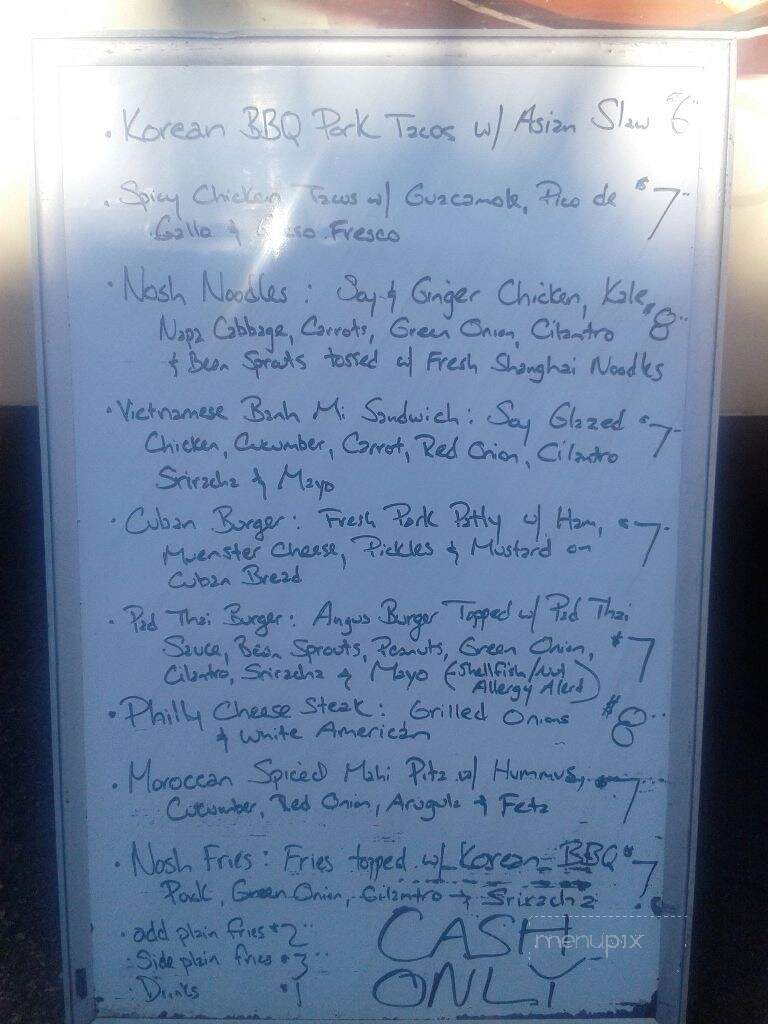 • Korean BBQ Pork Tacos w/ Asian Slaw $6
• Spicy Chicken Tacos w/ Guacamole, Pico de $7
Gallo & Queso Fresco
• Nosh Noodles: Soy & Ginger Chicken, Kale, $8
Napa Cabbage, Carrots, Green Onion, Cilantro
& Bean Sprouts tossed w/ Fresh Shanghai Noodles
• Vietnamese Banh Mi Sandwich: Soy Glazed $7
Chicken, Cucumber, Carrot, Red Onion, Cilantro
Sriracha & Mayo
• Cuban Burger: Fresh Pork Patty w/ Ham, $7
Muenster Cheese, Pickles & Mustard on
Cuban Bread
• Pad Thai Burger: Angus Burger Topped w/ Pad Thai
Sauce, Bean Sprouts, Peanuts, Green Onion, $7
Cilantro, Sriracha & Mayo (Shellfish/Nut
Allergy Alert)
• Philly Cheese Steak: Grilled Onions $8
& White American
• Moroccan Spiced Mahi Pita w/ Hummus, 7
Cucumber, Red Onion, Arugula & Feta
• Nosh Fries: Fries topped w/ Korean BBQ $7
Pork, Green Onion, Cilantro → Sriracha
• add plain fries $2
• Side plain fries $3
• Drinks $1
CASH
ONLY
menupix